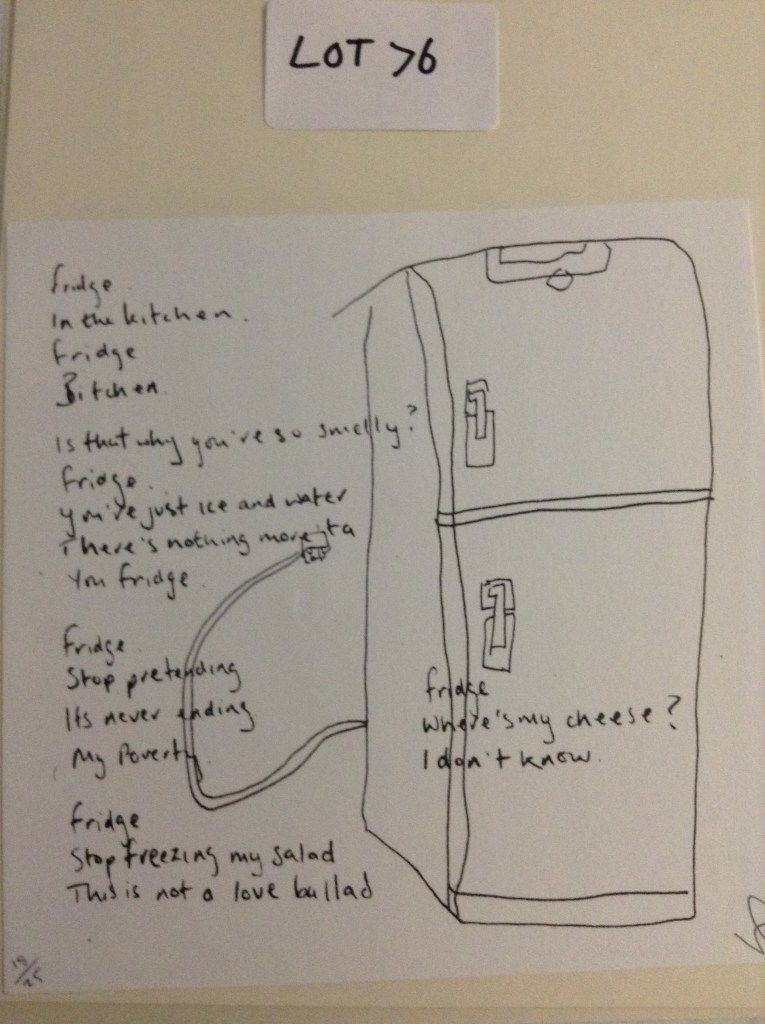 LOT >6
fridge.
In the kitchen.
fridge
Bitchen.
Is that why you're so smelly?
fridge.
you're just ice and water
There's nothing more ta
You fridge.
Fridge.
Stop pretending
Its never ending
My Poverty
fridge
Stop freezing my salad
This is not a love ballad
fridge
Where's my cheese?
I don't know.